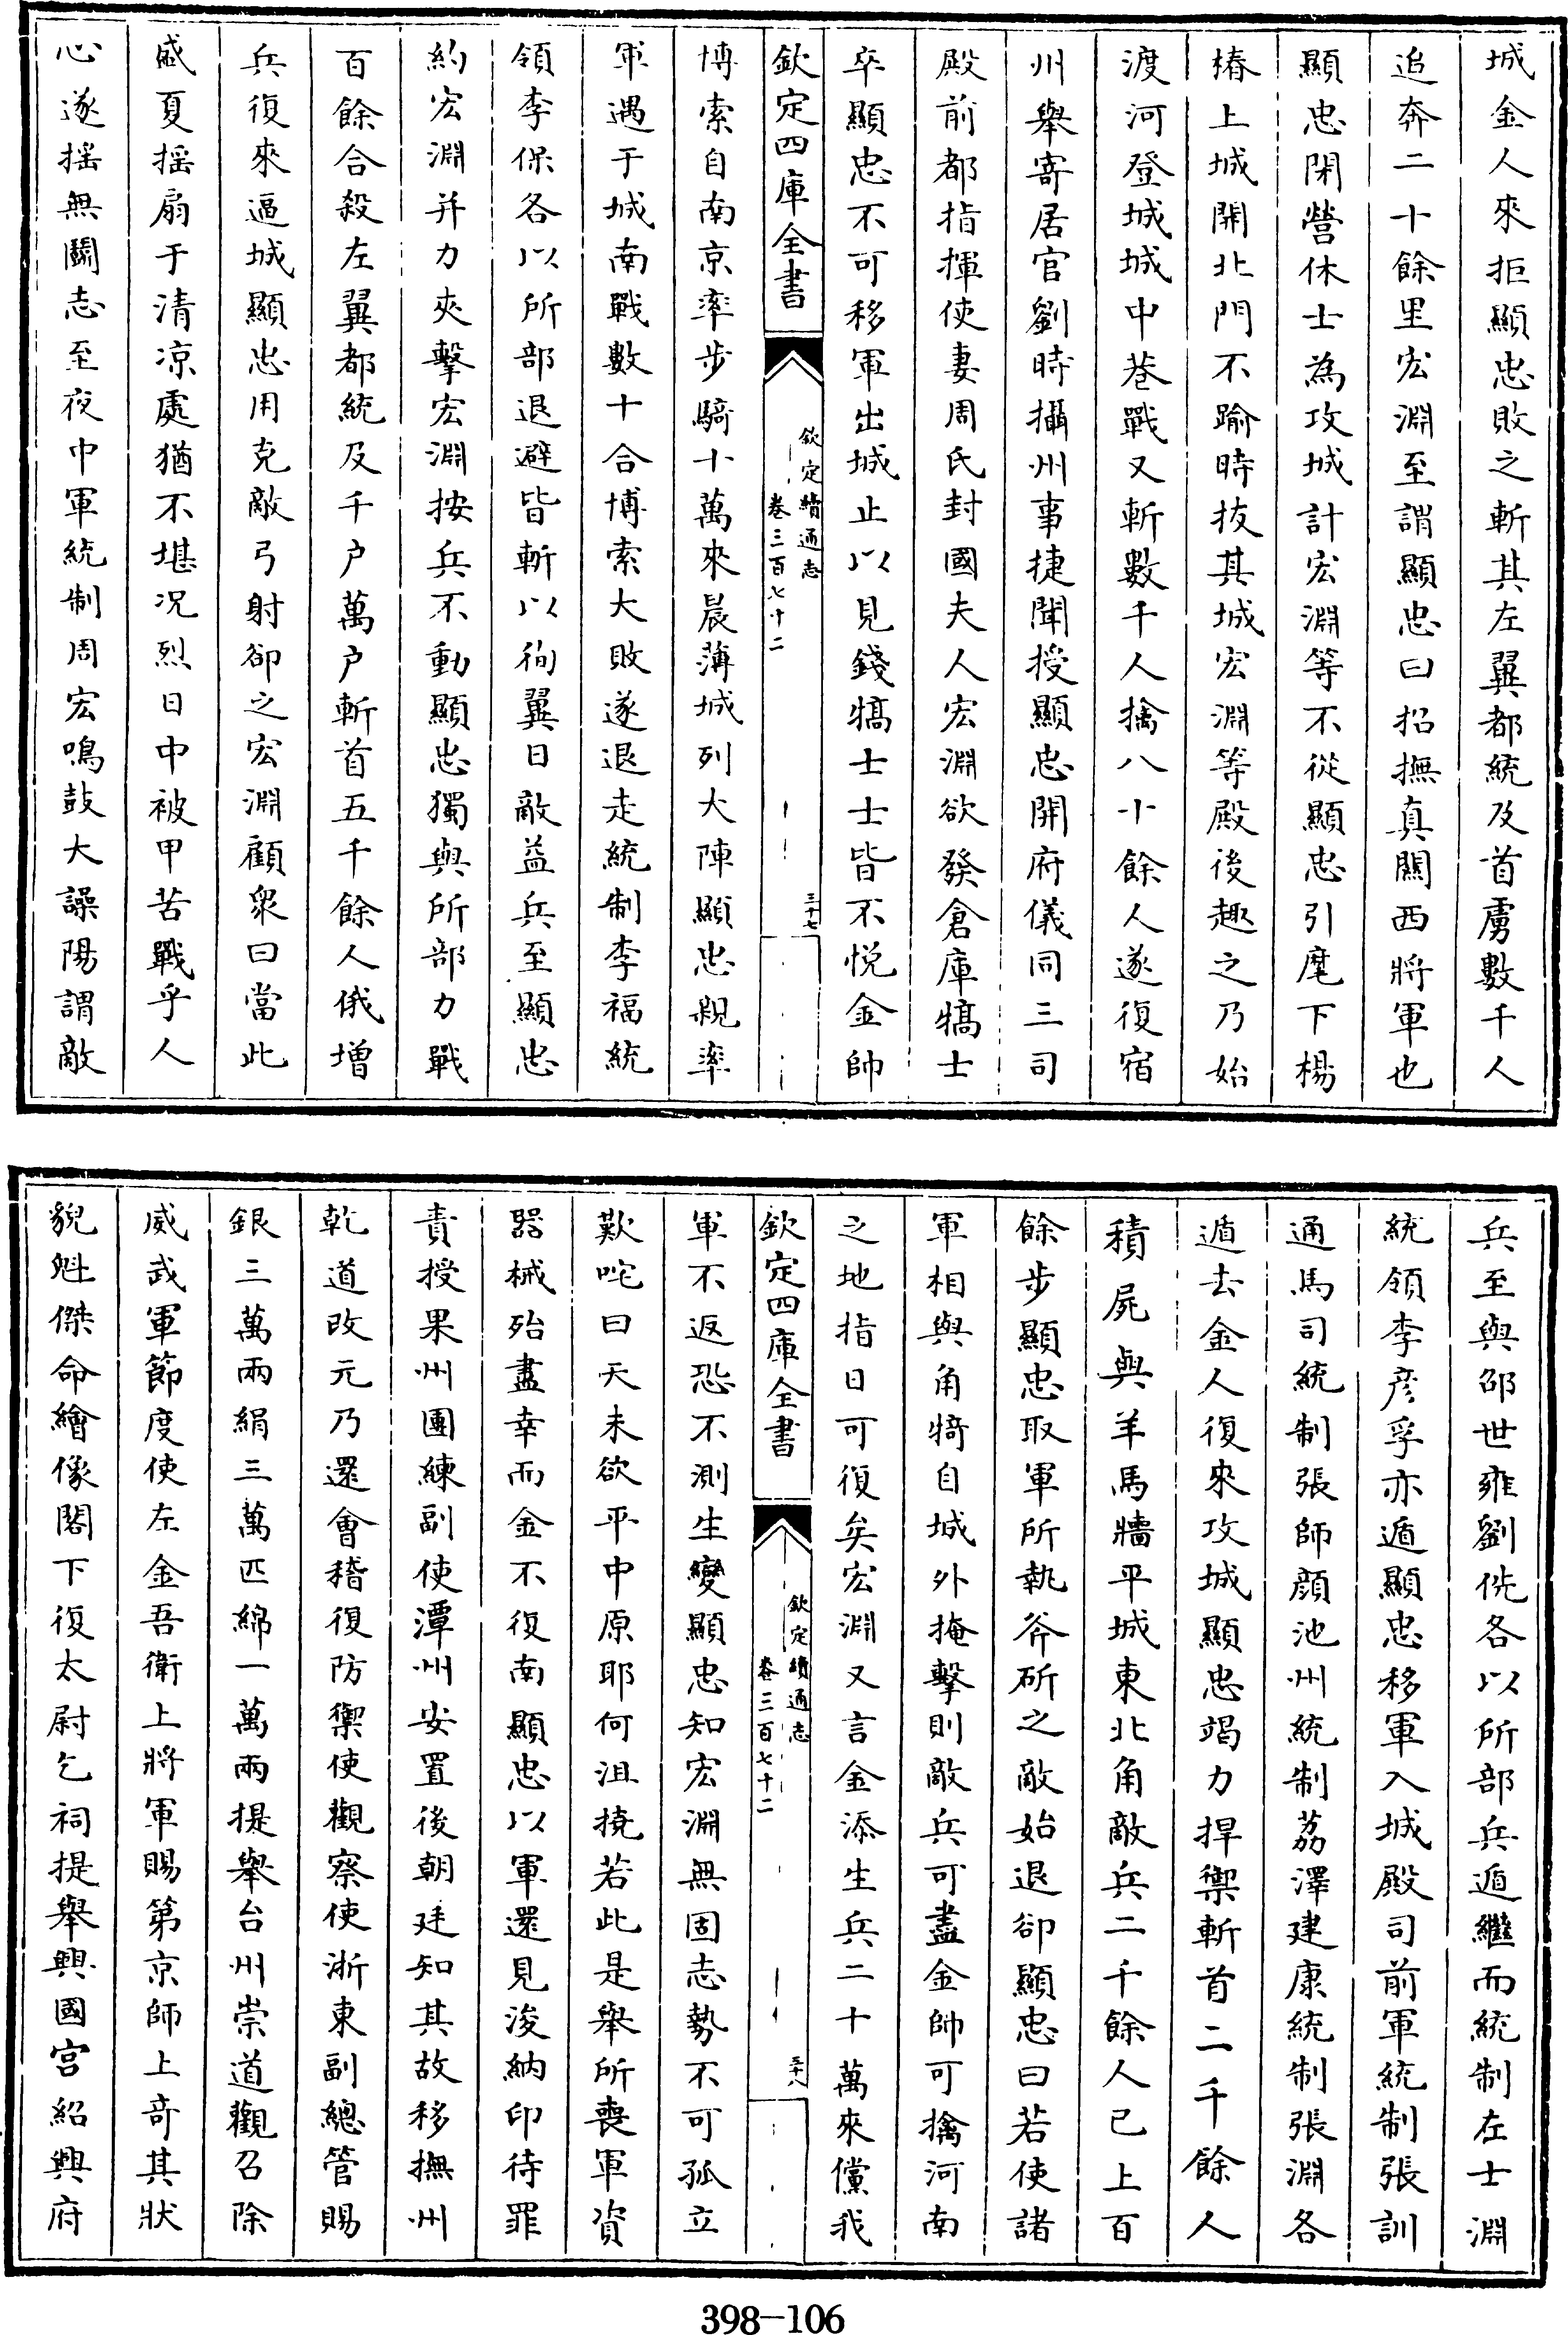 城金人來拒顯忠敗之斬其左翼都統及首虜數千人
追奔二十餘里宏淵至謂顯忠曰招撫真關西將軍也
顯忠閉營休士為攻城計宏淵等不從顯忠引麾下楊
椿上城開北門不踰時拔其城宏淵等殿後趣之乃始
渡河登城城中巷戰又斬數千人擒八十餘人遂復宿
州舉寄居官劉時攝州事捷聞授顯忠開府儀同三司
殿前都指揮使妻周氏封國夫人宏淵欲發倉庫犒士
卒顯忠不可移軍出城止以見錢犒士士皆不悅金帥
欽定四庫全書
欽定續通志
卷三百七十二
三十七
博索自南京率步騎十萬來晨薄城列大陣顯忠親率
軍遇于城南戰數十合博索大敗遂退走統制李福統
領李保各以所部退避皆斬以徇翼日敵益兵至顯忠
約宏淵并力夾擊宏淵按兵不動顯忠獨與所部力戰
百餘合殺左翼都統及千户萬户斬首五千餘人俄增
兵復來逼城顯忠用克敵弓射卻之宏淵顧衆曰當此
盛夏搖扇于清凉處猶不堪况烈日中被甲苦戰乎人
心遂搖無鬭志至夜中軍統制周宏鳴鼓大譟陽謂敵
兵至與邵世雍劉侁各以所部兵遁繼而統制左士淵
統領李彦孚亦遁顯忠移軍入城殿司前軍統制張訓
通馬司統制張師顔池州統制荔澤建康統制張淵各
遁去金人復來攻城顯忠竭力捍禦斬首二千餘人
積屍與羊馬牆平城東北角敵兵二千餘人已上百
餘步顯忠取軍所執斧斫之敵始退卻顯忠曰若使諸
軍相與角犄自城外掩擊則敵兵可盡金帥可擒河南
之地指日可復矣宏淵又言金添生兵二十萬來儻我
欽定四庫全書
欽定續通志
卷三百七十二
三十八
軍不返恐不測生變顯忠知宏淵無固志勢不可孤立
歎咤曰天未欲平中原耶何沮撓若此是舉所喪軍資
器械殆盡幸而金不復南顯忠以軍還見浚納印待罪
責授果州團練副使潭州安置後朝廷知其故移撫州
乾道改元乃還會稽復防禦使觀察使浙東副總管賜
銀三萬兩絹三萬匹綿一萬兩提舉台州崇道觀召除
威武軍節度使左金吾衛上將軍賜第京師上奇其狀
貌魁傑命繪像閣下復太尉乞祠提舉興國宫紹興府
398-106